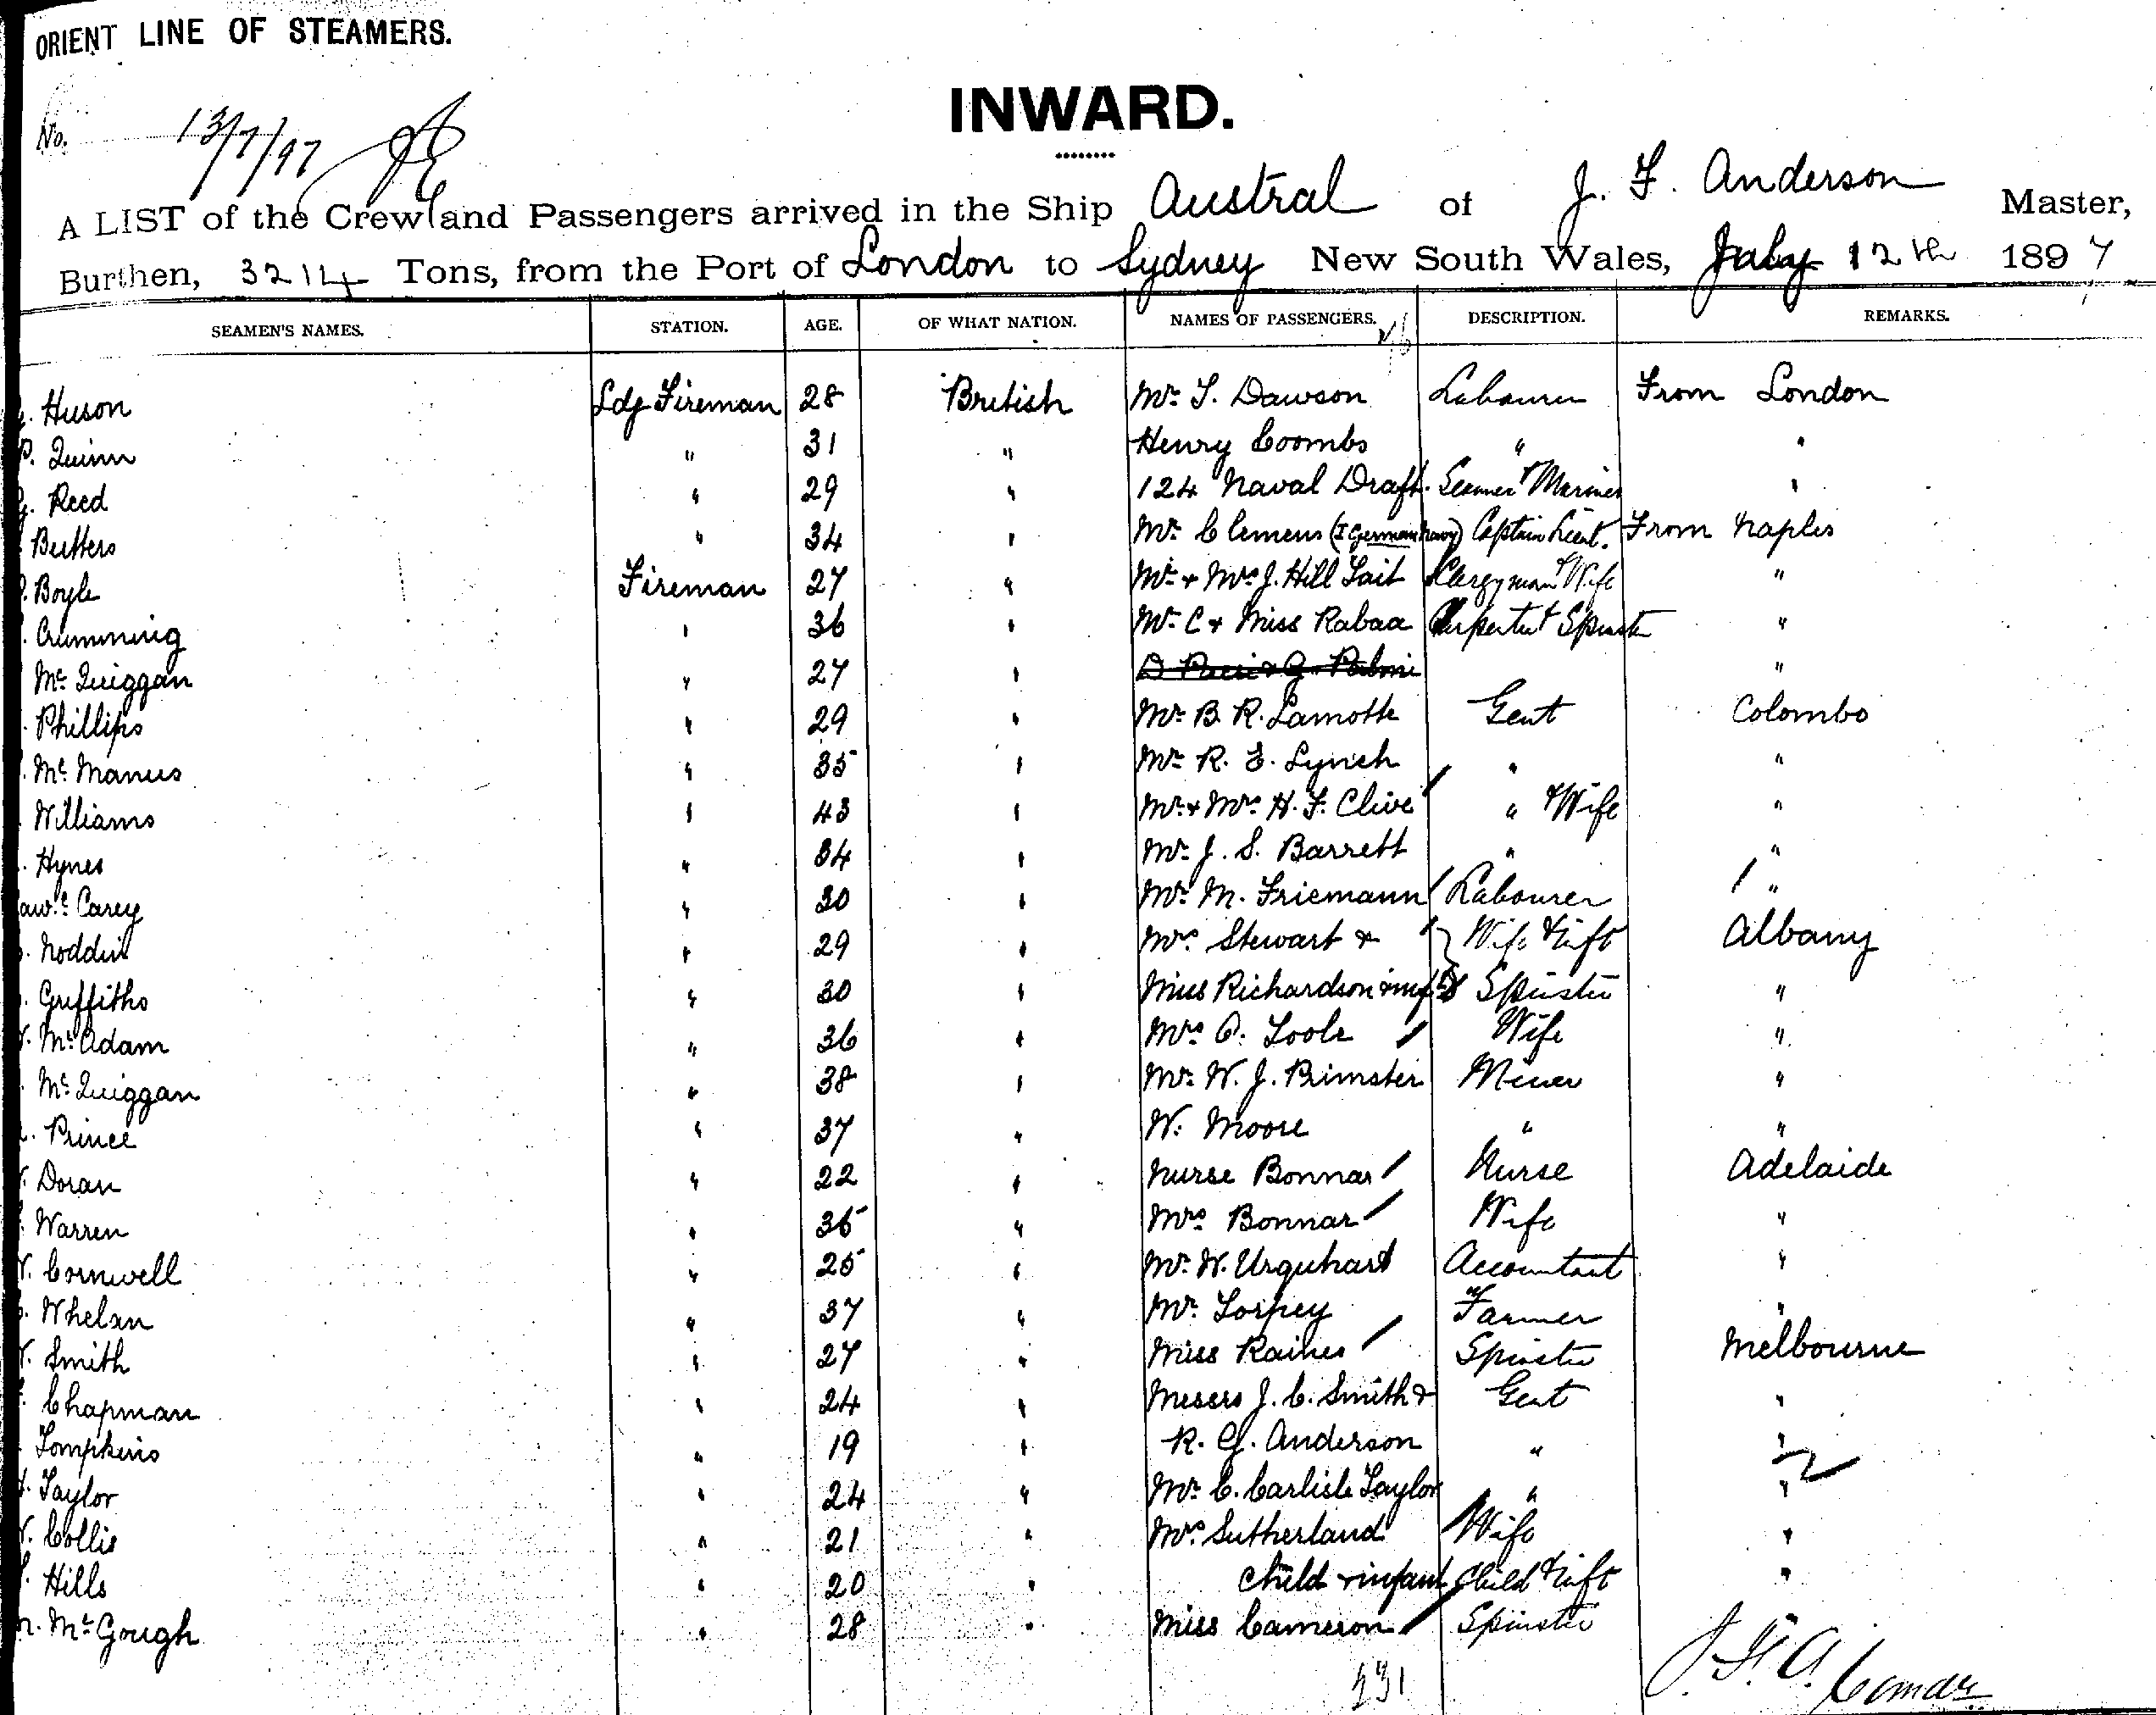 ORIENT LINE OF STEAMERS.
INWARD.
No. 13/7/97
A LIST of the Crew and Passengers arrived in the Ship Austral of J. F. Anderson Master,
Burthen, 3214 Tons, from the Port of London to Sydney New South Wales, July 12th 1897
SEAMEN'S NAMES. STATION. AGE. OF WHAT NATION. NAMES OF PASSENGERS. DESCRIPTION. REMARKS.
Huson Ldg Fireman 28 British Mr. T. Dawson Labourer From London
P. Quinn " 31 " Henry Coombs " "
Reed " 29 " 124 Naval Draft. Seamen & Marines "
Butters " 34 " Mr. Clemens (I German Navy) Captain Lieut. From Naples
Boyle Fireman 27 " Mr. & Mrs J. Hill Tait Clergyman & Wife "
Cumming " 36 " Mr. C & Miss Rabaa Carpenter & Spinster "
Mc Quiggan " 27 " "
Phillips " 29 " Mr. B. R. Lamotte Gent Colombo
Mc Manus " 35 " Mr. R. F. Lynch " "
Williams " 43 " Mr. & Mrs. H. F. Clive " & Wife "
Hynes " 34 " Mr. J. S. Barrett " "
Carey " 30 " Mr. M. Friemann Labourer "
Noddin " 29 " Mrs. Stewart & Wife & Inft Albany
Griffiths " 30 " Miss Richardson & inft Spinster "
Mc Adam " 36 " Mrs O. Toole Wife "
Mc Quiggan " 38 " Mr. W. J. Brimster Miner "
Prince " 37 " W. Moore " "
Doran " 22 " Nurse Bonnar Nurse Adelaide
Warren " 35 " Mrs Bonnar Wife "
Cornwell " 25 " Mr. W. Urquhart Accountant "
Whelan " 37 " Mr. Torpey Farmer "
Smith " 27 " Miss Raines Spinster Melbourne
Chapman " 24 " Messrs J. C. Smith & Gent "
Tompkins " 19 " R. G. Anderson " "
Taylor " 24 " Mr. C. Carlisle Taylor " "
Collis " 21 " Mrs. Sutherland Wife "
Hills " 20 " child & infant Child & Inft "
Mc Gough " 28 " Miss Cameron Spinster "
231
J. F. A. Comdr